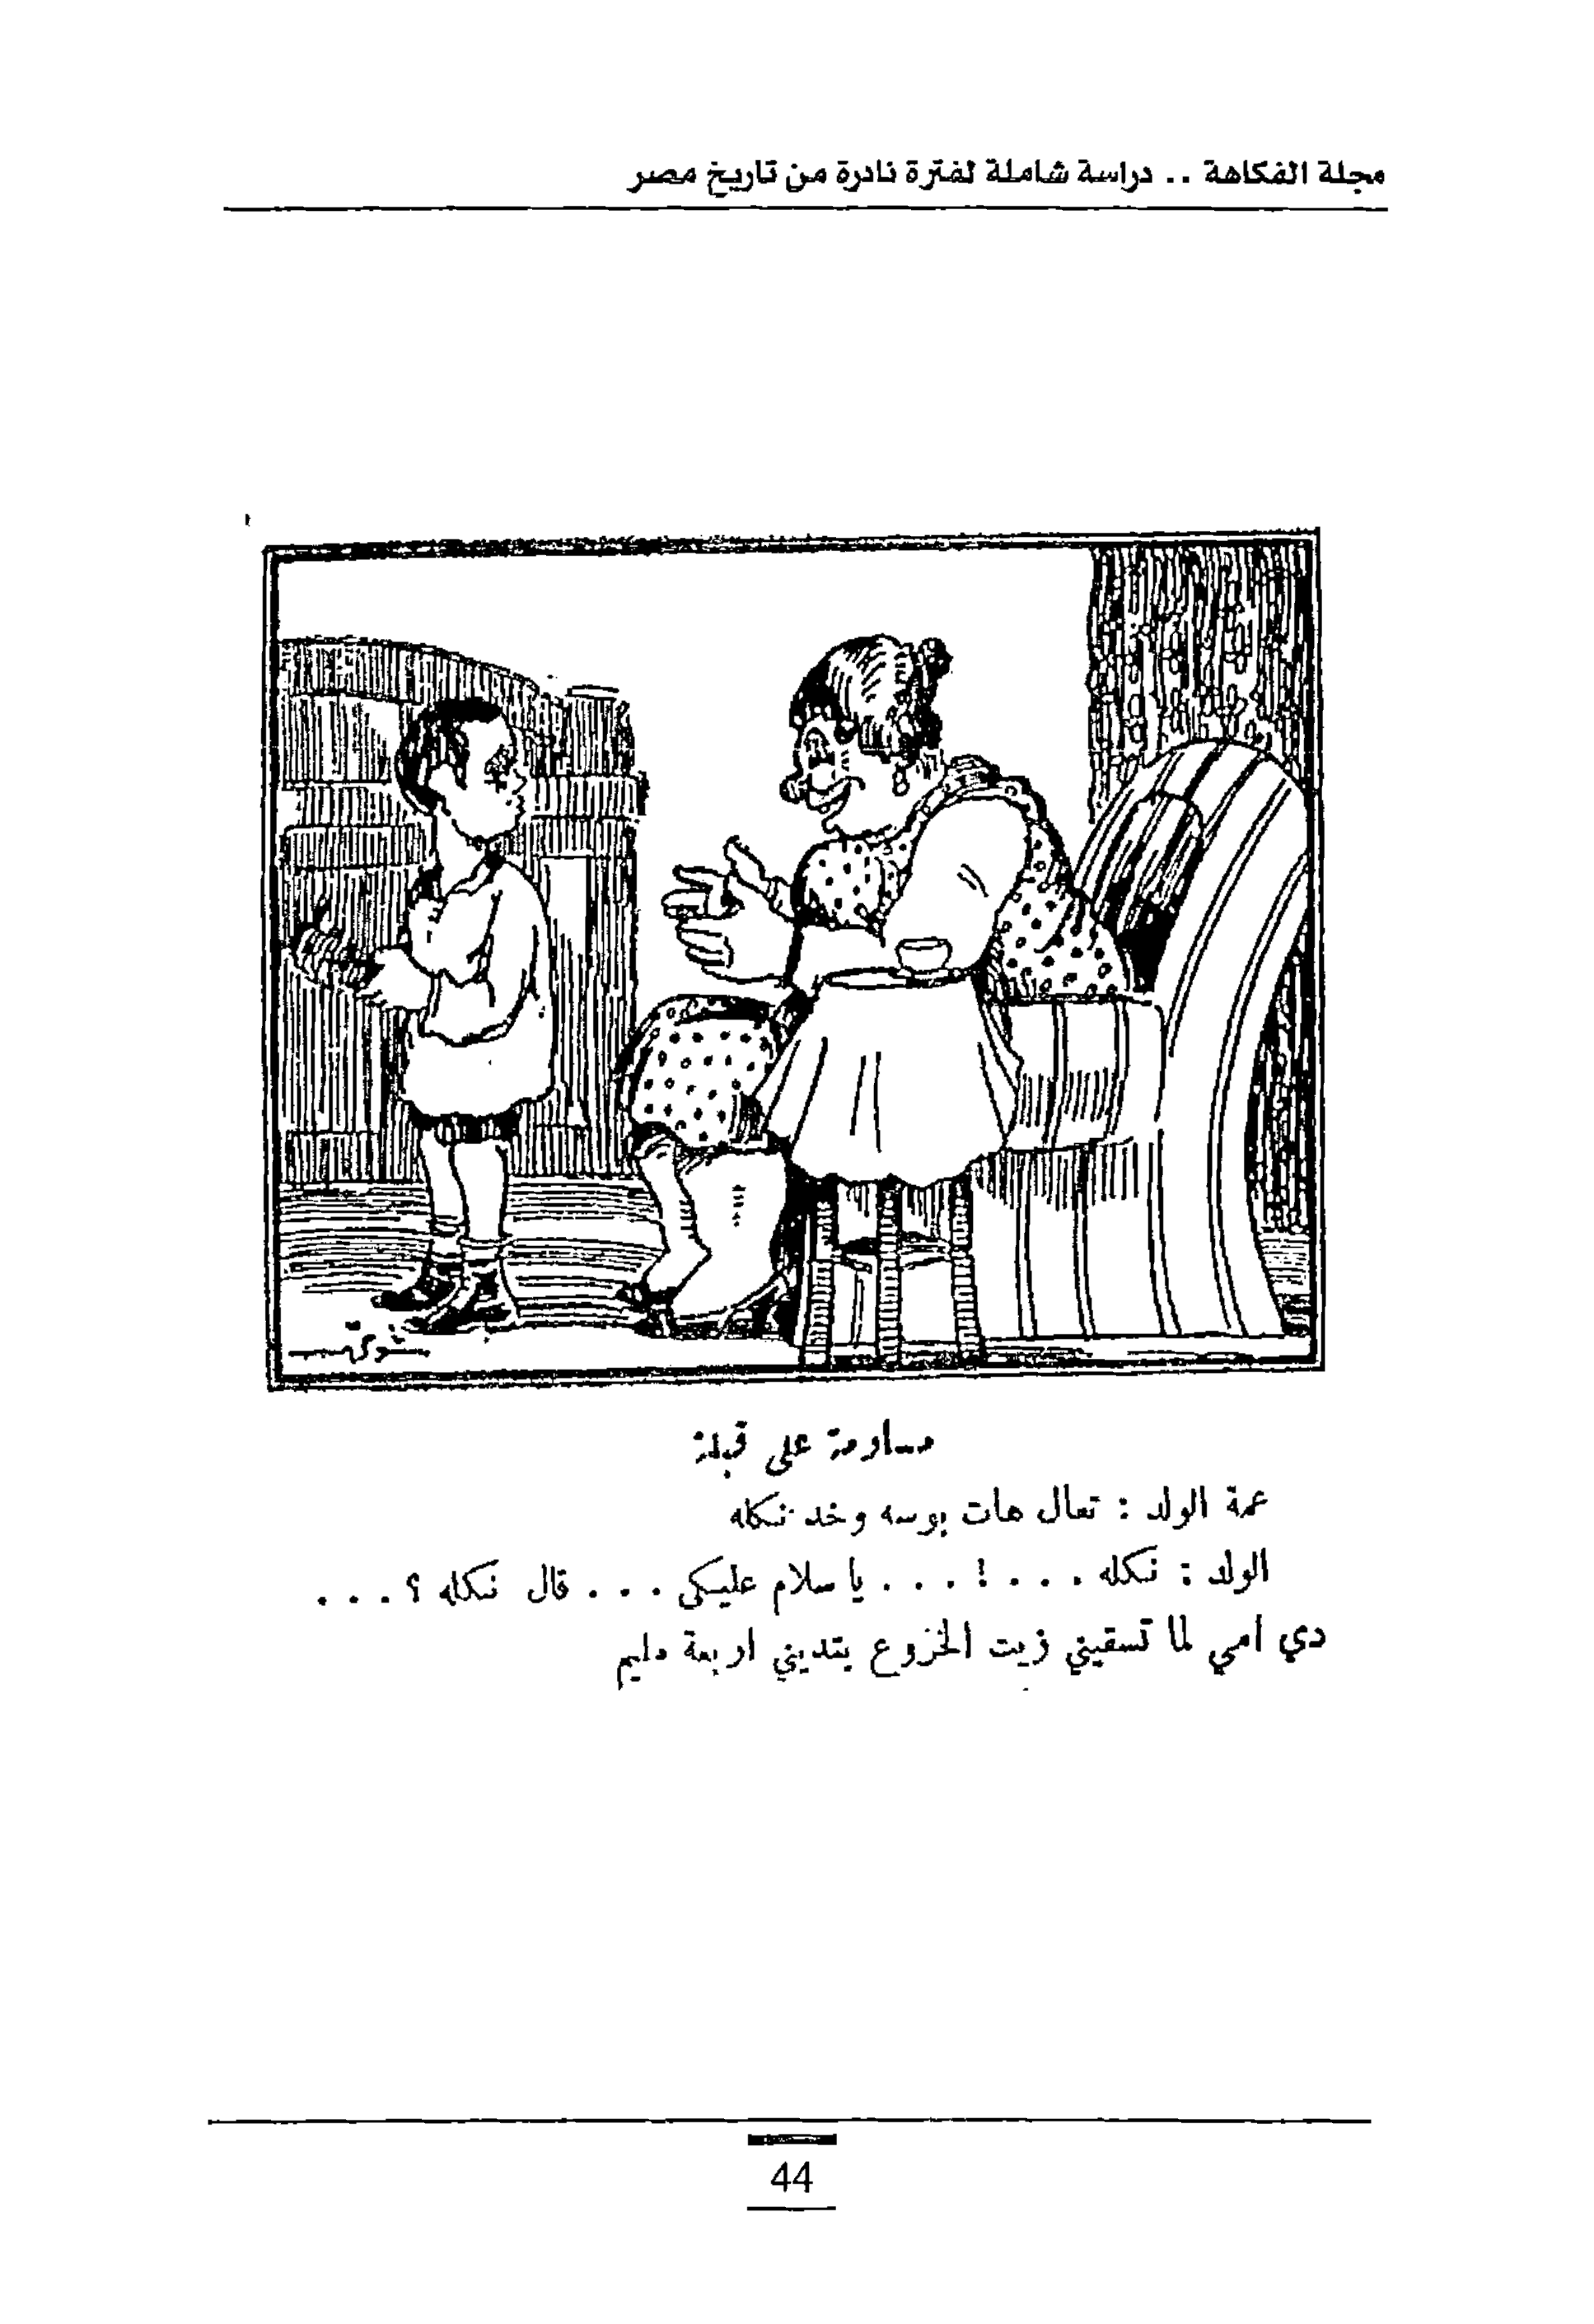 مجلة الفكاهة .. دراسة شاملة لفترة نادرة من تاريخ مصر
مساومة على قبلة
عمة الولد : تعال هات بوسه وخد نكله
الولد : نكله . . . . ! . . . يا سلام عليكى . . . قال نكله ؟ . . .
دي امي لما تسقيني زيت الخروع بتديني اربعة مليم
44